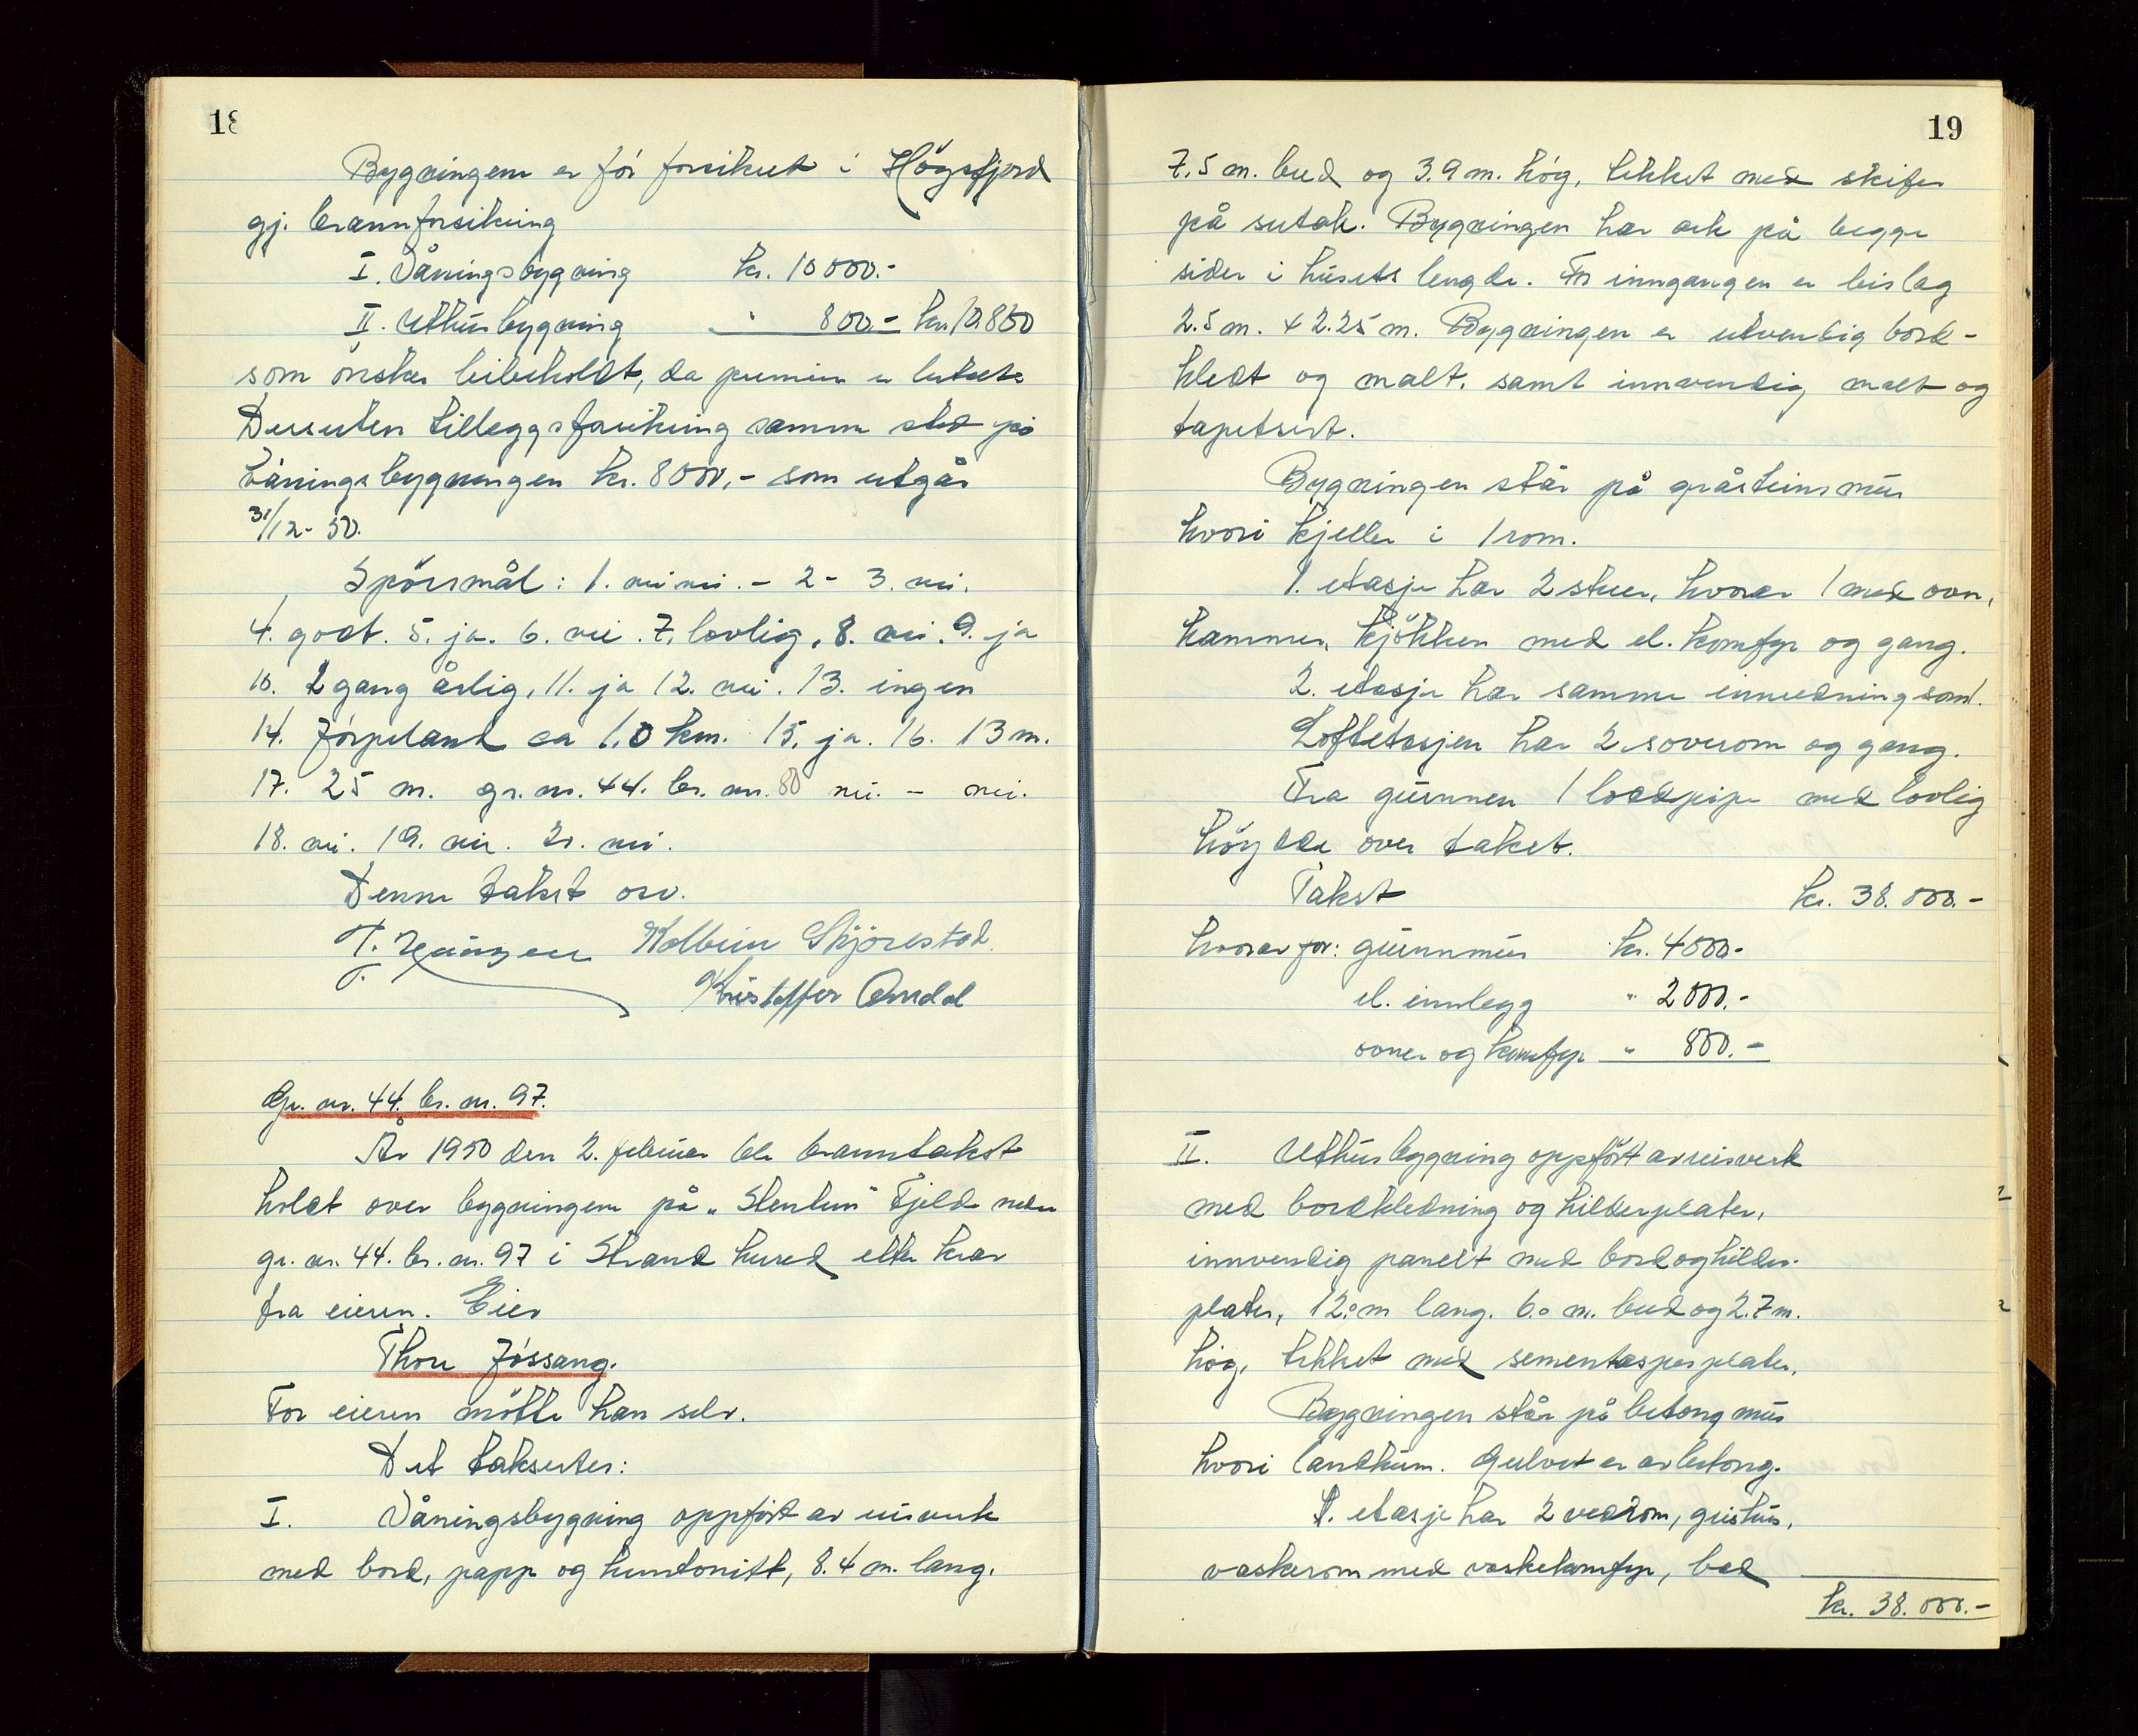 18
Bygningene er för forsikret i Högsfjord
gj. brannforsikring
I. Våningsbygning kr. 10000.-
II. Uthusbygning " 800.- kr. 10800
som önskes bibeholdt, da premien er betalt.
Dessuten tilleggsforsikring samme sted på
våningsbygningen kr. 8000,- som utgår
31/12-50.
Spörsmål: 1. nei nei. - 2 - 3. nei.
4. godt. 5. ja. 6. nei. 7. lovlig. 8. nei. 9. ja
10. 2 gang årlig, 11. ja 12. nei. 13. ingen
14. Jörpeland ca 1,0 km. 15. ja. 16. 13 m.
17. 25 m. gr. nr. 44. br. nr. 80 nei. - nei.
18. nei. 19. nei. 20. nei.
Denne takst osv.
T. Kolbein Skjörestad.
Kristoffer Amdal
Gr. nr. 44. br. nr. 97.
År 1950 den 2. februar ble branntakst
holdt over bygningene på "Stentun" Fjelde nedre
gr. nr. 44. br. nr. 97 i Strand herred etter krav
fra eieren. Eier
Thore Jössang.
For eieren mötte han selv.
Det takseres:
I. Våningsbygning oppfört av reisverk
med bord, papp og huntonitt, 8.4 m. lang.
19
7.5 m. bred og 3.9 m. hög, tekket med skifer
på sutak. Bygningen har ark på begge
sider i husets lengde. For inngangen er bislag
2.5 m. x 2.25 m. Bygningen er utvendig bord-
kledt og malt. samt innvendig malt og
tapetsert.
Bygningen står på gråsteinsmur
hvori kjeller i 1 rom.
1. etasje har 2 stuer, hvorav 1 med ovn,
kammer, kjökken med el. komfyr og gang.
2. etasje har samme innredning som 1.
Loftetasjen har 2 soverom og gang.
Fra grunnen 1 loddpipe med lovlig
höyde over taket.
Takst kr. 38.000.-
hvorav for: grunnmur kr. 4000-
el. innlegg " 2000.-
ovner og komfyr " 800.-
II. Uthusbygning oppfört av reisverk
med bordkledning og hilderplater,
innvendig panelt med bord og hilder-
plater, 12.0 m lang. 6.0 m. bred og 2.7 m.
hög, tekket med sementasperplater.
Bygningen står på betongmur
hvori landkum. Gulvet er av betong.
1. etasje har 2 vedrom, grishus,
vaskerom med vaskekomfyr, bad
kr. 38.000.-